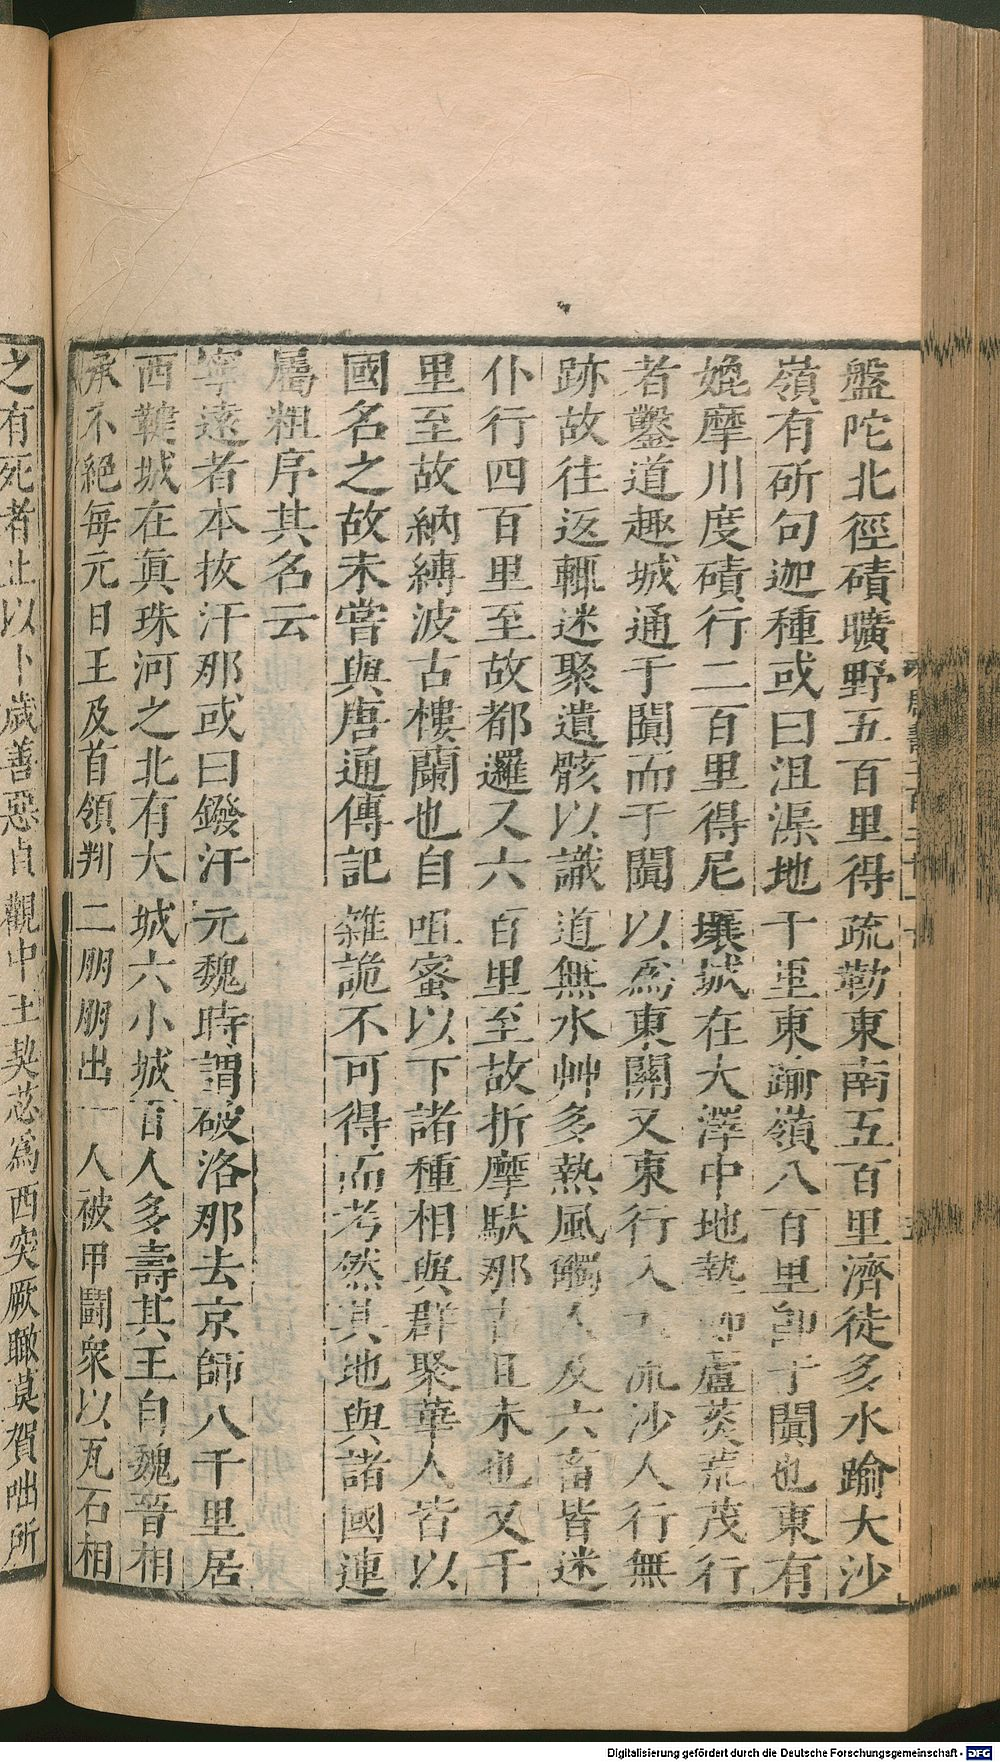 盤陀北徑磧曠野五百里得疏勒東南五百里濟徒多水踰大沙
嶺有斫句迦種或曰沮渠地千里東踰嶺八百里卽于闐也東有
媲摩川度磧行二百里得尼壤城在大澤中地熱蘆葵荒茂行
者鑿道趣城通于闐而于闐以爲東關又東行入流沙人行無
跡故往返輒迷聚遺骸以識道無水艸多熱風觸人及六畜皆迷
仆行四百里至故都邏又六百里至故折摩馱那古且末也又千
里至故納縛波古樓蘭也自咀蜜以下諸種相與群聚華人皆以
國名之故未嘗與唐通傳記雜詭不可得而考然其地與諸國連
屬粗序其名云
寧遠者本拔汗那或曰鏺汗元魏時謂破洛那去京師八千里居
西鞬城在眞珠河之北有大城六小城百人多壽其王自魏晉相
承不絕每元日王及首領判二朋朋出一人被甲鬬衆以瓦石相
之有死者止以卜歲善惡貞觀中王契苾爲西突厥瞰莫賀咄所
Digitalisierung gefördert durch die Deutsche Forschungsgemeinschaft - DFG